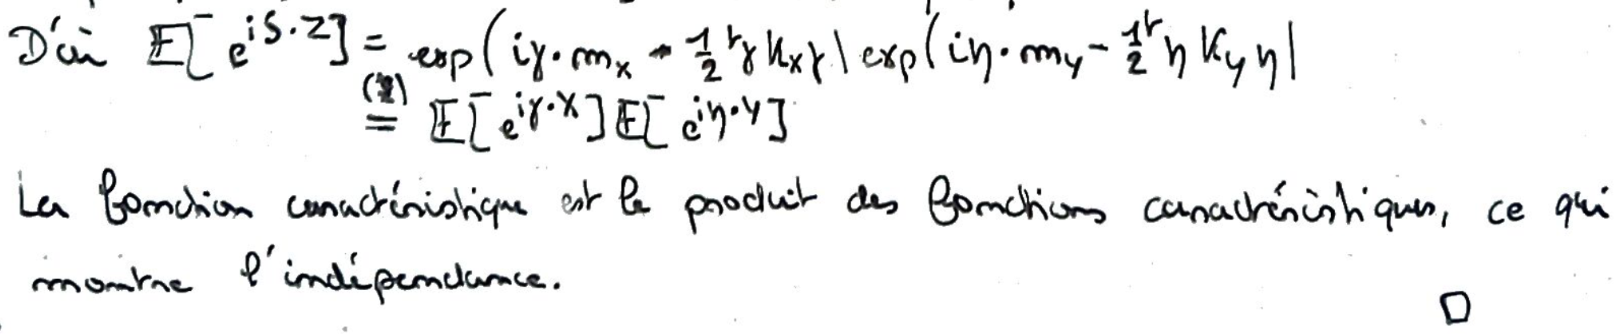 D'où 𝔼[e^{iS·Z}] = exp(iγ·m_x - ½ ᵗγ K_x γ) exp(iη·m_y - ½ ᵗη K_y η)
(1)= 𝔼[e^{iγ·X}] 𝔼[e^{iη·Y}]
La fonction caractéristique est le produit des fonctions caractéristiques, ce qui
montre l'indépendance.
□